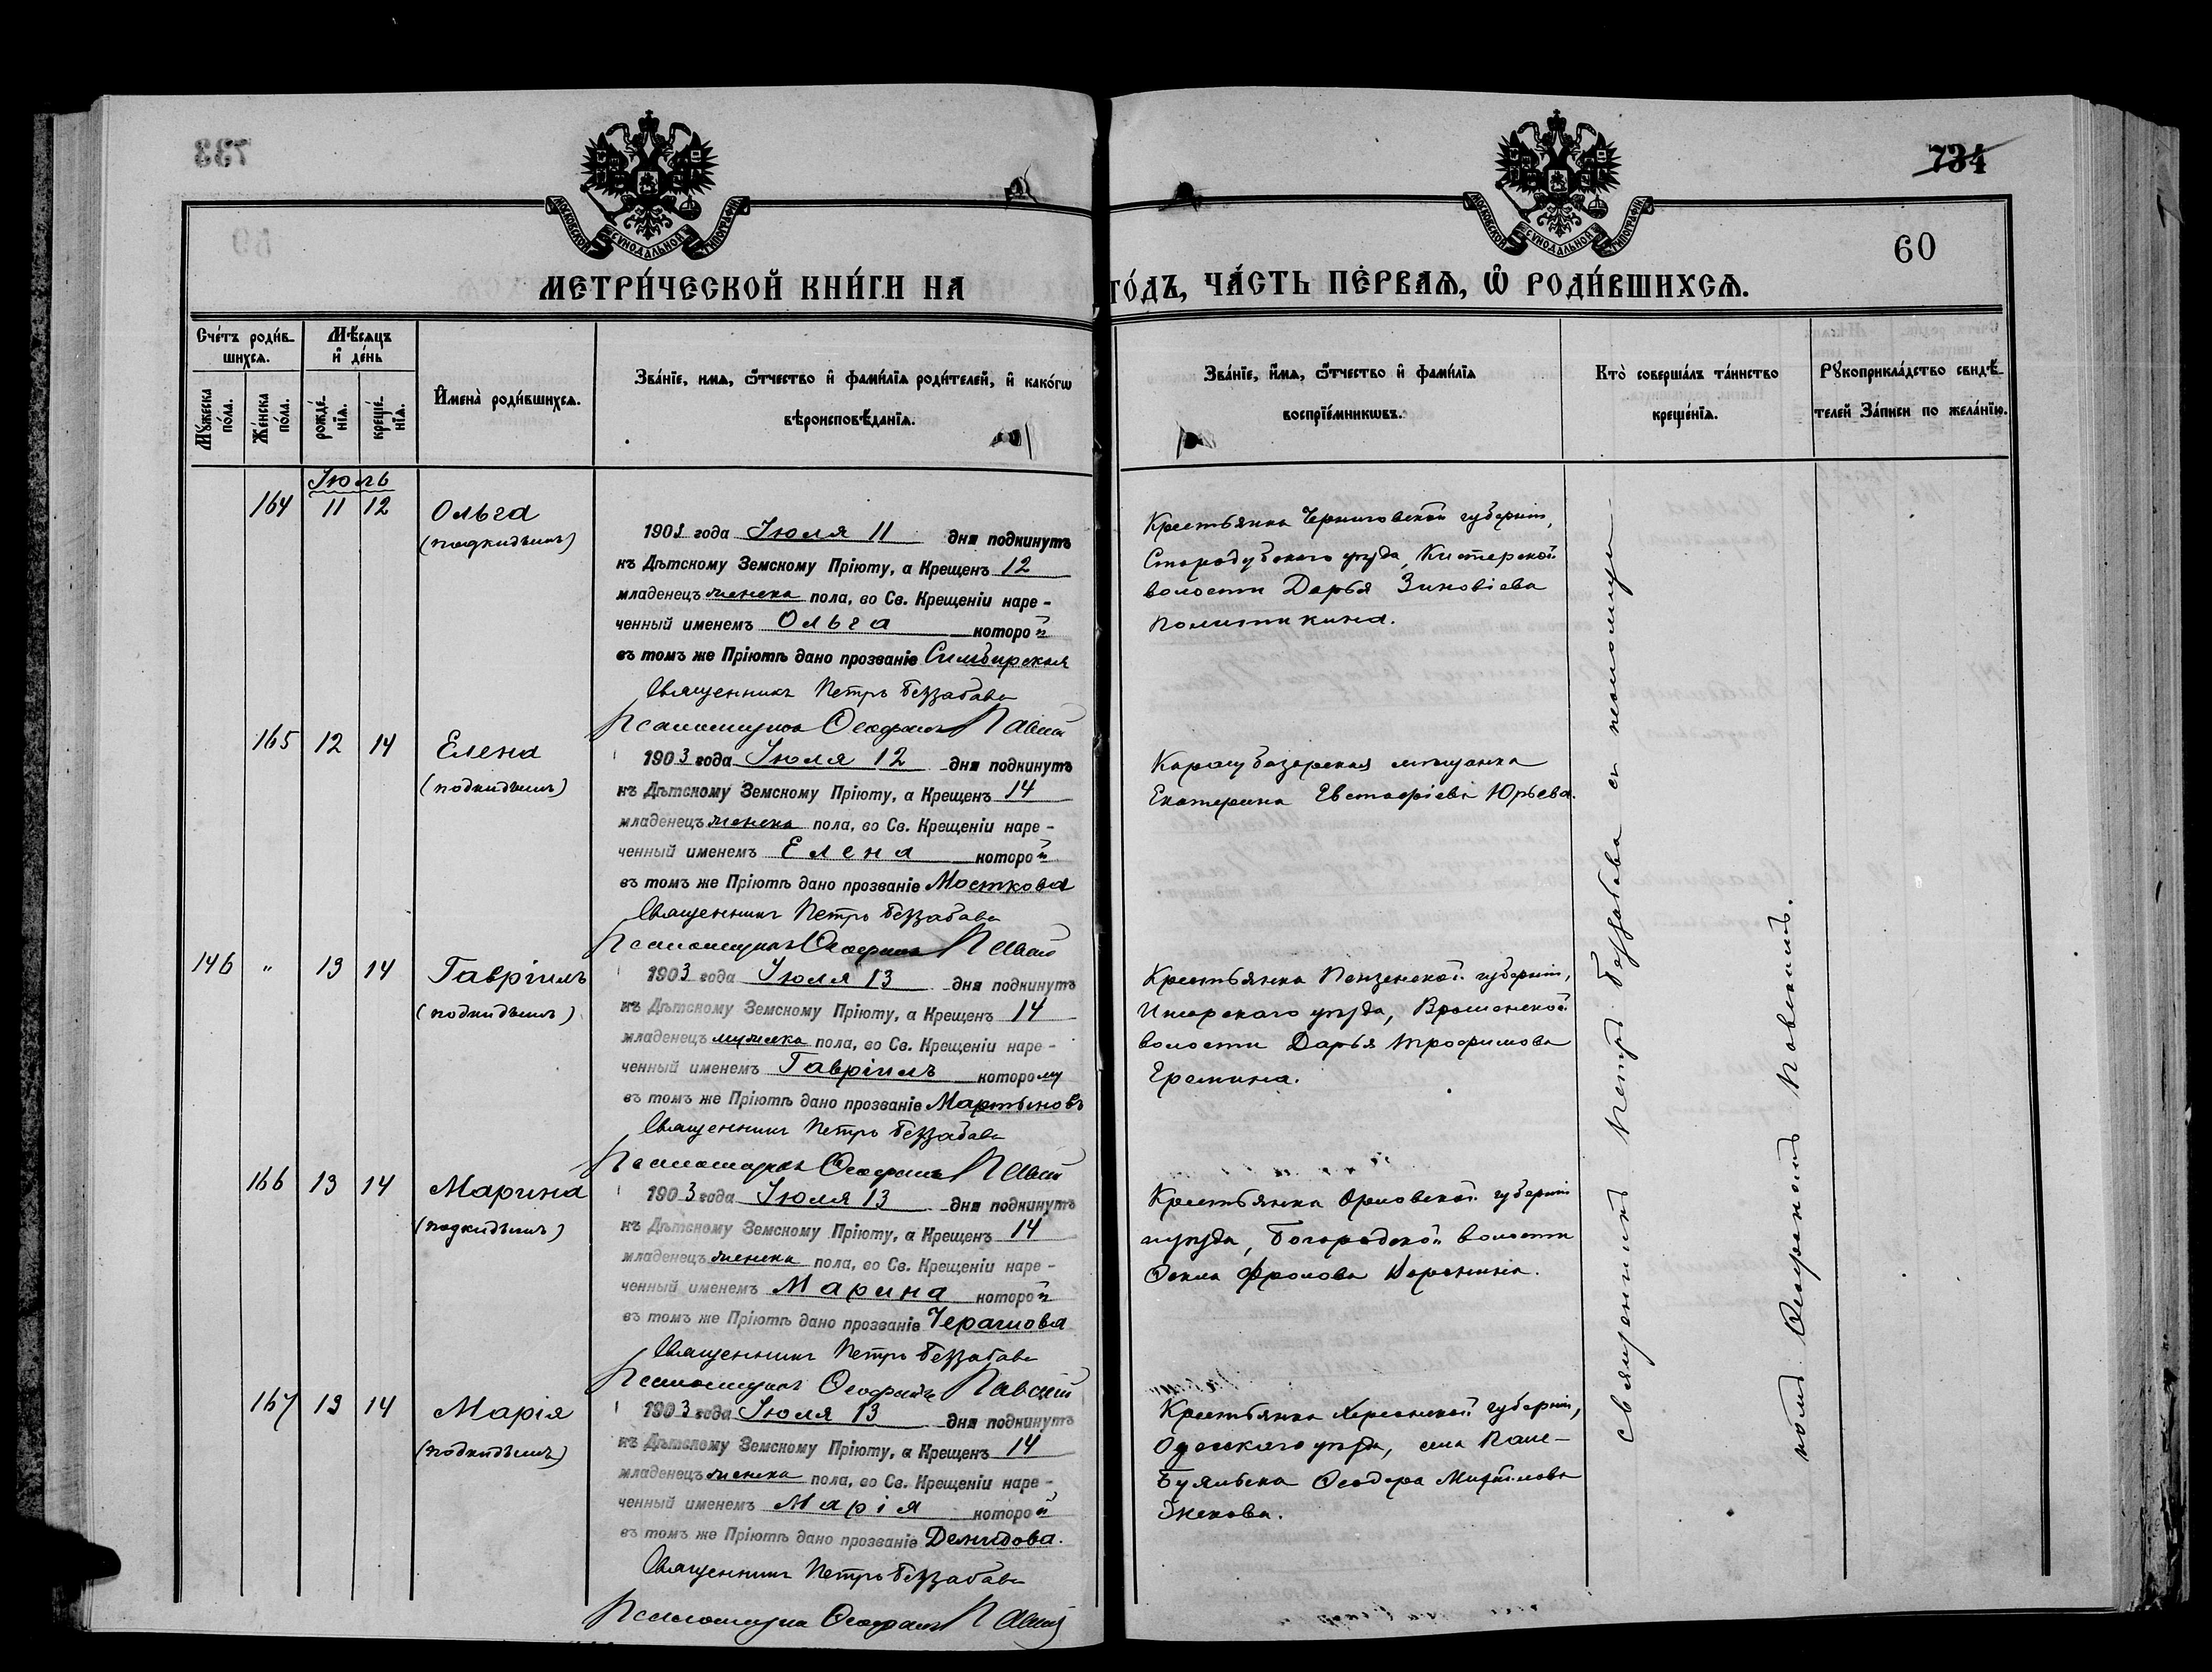 733
734
60
МОСКОВСКОЙ СѴНОДАЛЬНОЙ ТИПОГРАФІИ
МОСКОВСКОЙ СѴНОДАЛЬНОЙ ТИПОГРАФІИ
МЕТРИ́ЧЕСКОЙ КНИ́ГИ НА
ГО́ДЪ, ЧА́СТЬ ПЕ́РВАѦ, Ѡ҆ РОДИ́ВШИХСѦ.
Сче́тъ роди́в-
шихсѧ.
Мꙋ́жеска по́ла.
Же́нска по́ла.
Мѣ́сѧцъ
и҆ де́нь
рожде́-
нїѧ.
креще́-
нїѧ.
И҆мена̀ роди́вшихсѧ.
Зва́нїе, имѧ, ѻ҆́тчество и҆ фами́лїѧ роди́телей, и҆ како́гѡ
вѣроисповѣ́данїѧ.
Зва́нїе, и҆́мѧ, ѻ҆́тчество и҆ фами́лїѧ
воспрїе́мникѡвъ.
Кто̀ соверша́лъ та́инство
креще́нїѧ.
Рꙋкоприкла́дство свидѣ́-
телей За́писи по жела́нїю.
Іюль
164 11 12 Ольга
(подкидышъ)
1903 года Іюля 11 дня подкинутъ
къ Дѣтскому Земскому Пріюту, а Крещенъ 12
младенецъ женска пола, во Св. Крещеніи наре-
ченный именемъ Ольга которой
въ томъ же Пріютѣ дано прозваніе Симбирская
Священникъ Петръ Беззабава
Псаломщикъ Ѳеофанъ
Крестьянка Черниговской губерніи,
Стародубскаго уѣзда, Кистерской
волости Дарья Зиновіева
Политикина.
165 12 14 Елена
(подкидышъ)
1903 года Іюля 12 дня подкинутъ
къ Дѣтскому Земскому Пріюту, а Крещенъ 14
младенецъ женска пола, во Св. Крещеніи наре-
ченный именемъ Елена которой
въ томъ же Пріютѣ дано прозваніе Мосткова
Священникъ Петръ Беззабава
Псаломщикъ Ѳеофанъ
Карасубазарская мѣщанка
Екатерина Евстафіева Юрьева.
146 " 13 14 Гавріилъ
(подкидышъ)
1903 года Іюля 13 дня подкинутъ
къ Дѣтскому Земскому Пріюту, а Крещенъ 14
младенецъ мужска пола, во Св. Крещеніи наре-
ченный именемъ Гавріилъ которому
въ томъ же Пріютѣ дано прозваніе Мартыновъ
Священникъ Петръ Беззабава
Псаломщикъ Ѳеофанъ
Крестьянка Пензенской губерніи,
Инсарскаго уѣзда,
волости Дарья Трофимова
Еремина.
166 13 14 Марина
(подкидышъ)
1903 года Іюля 13 дня подкинутъ
къ Дѣтскому Земскому Пріюту, а Крещенъ 14
младенецъ женска пола, во Св. Крещеніи наре-
ченный именемъ Марина которой
въ томъ же Пріютѣ дано прозваніе
Священникъ Петръ Беззабава
Псаломщикъ Ѳеофанъ
Крестьянка Орловской губерніи
и уѣзда, Богородской волости
Ѳекла Фролова
167 13 14 Марія
(подкидышъ)
1903 года Іюля 13 дня подкинутъ
къ Дѣтскому Земскому Пріюту, а Крещенъ 14
младенецъ женска пола, во Св. Крещеніи наре-
ченный именемъ Марія которой
въ томъ же Пріютѣ дано прозваніе Демидова.
Священникъ Петръ Беззабава
Псаломщикъ Ѳеофанъ
Крестьянка Херсонской губерніи,
Одесскаго уѣзда, села
Буялыка Ѳеодора Михаилова
священникъ Петръ Беззабава съ псаломщи-
комъ Ѳеофаномъ